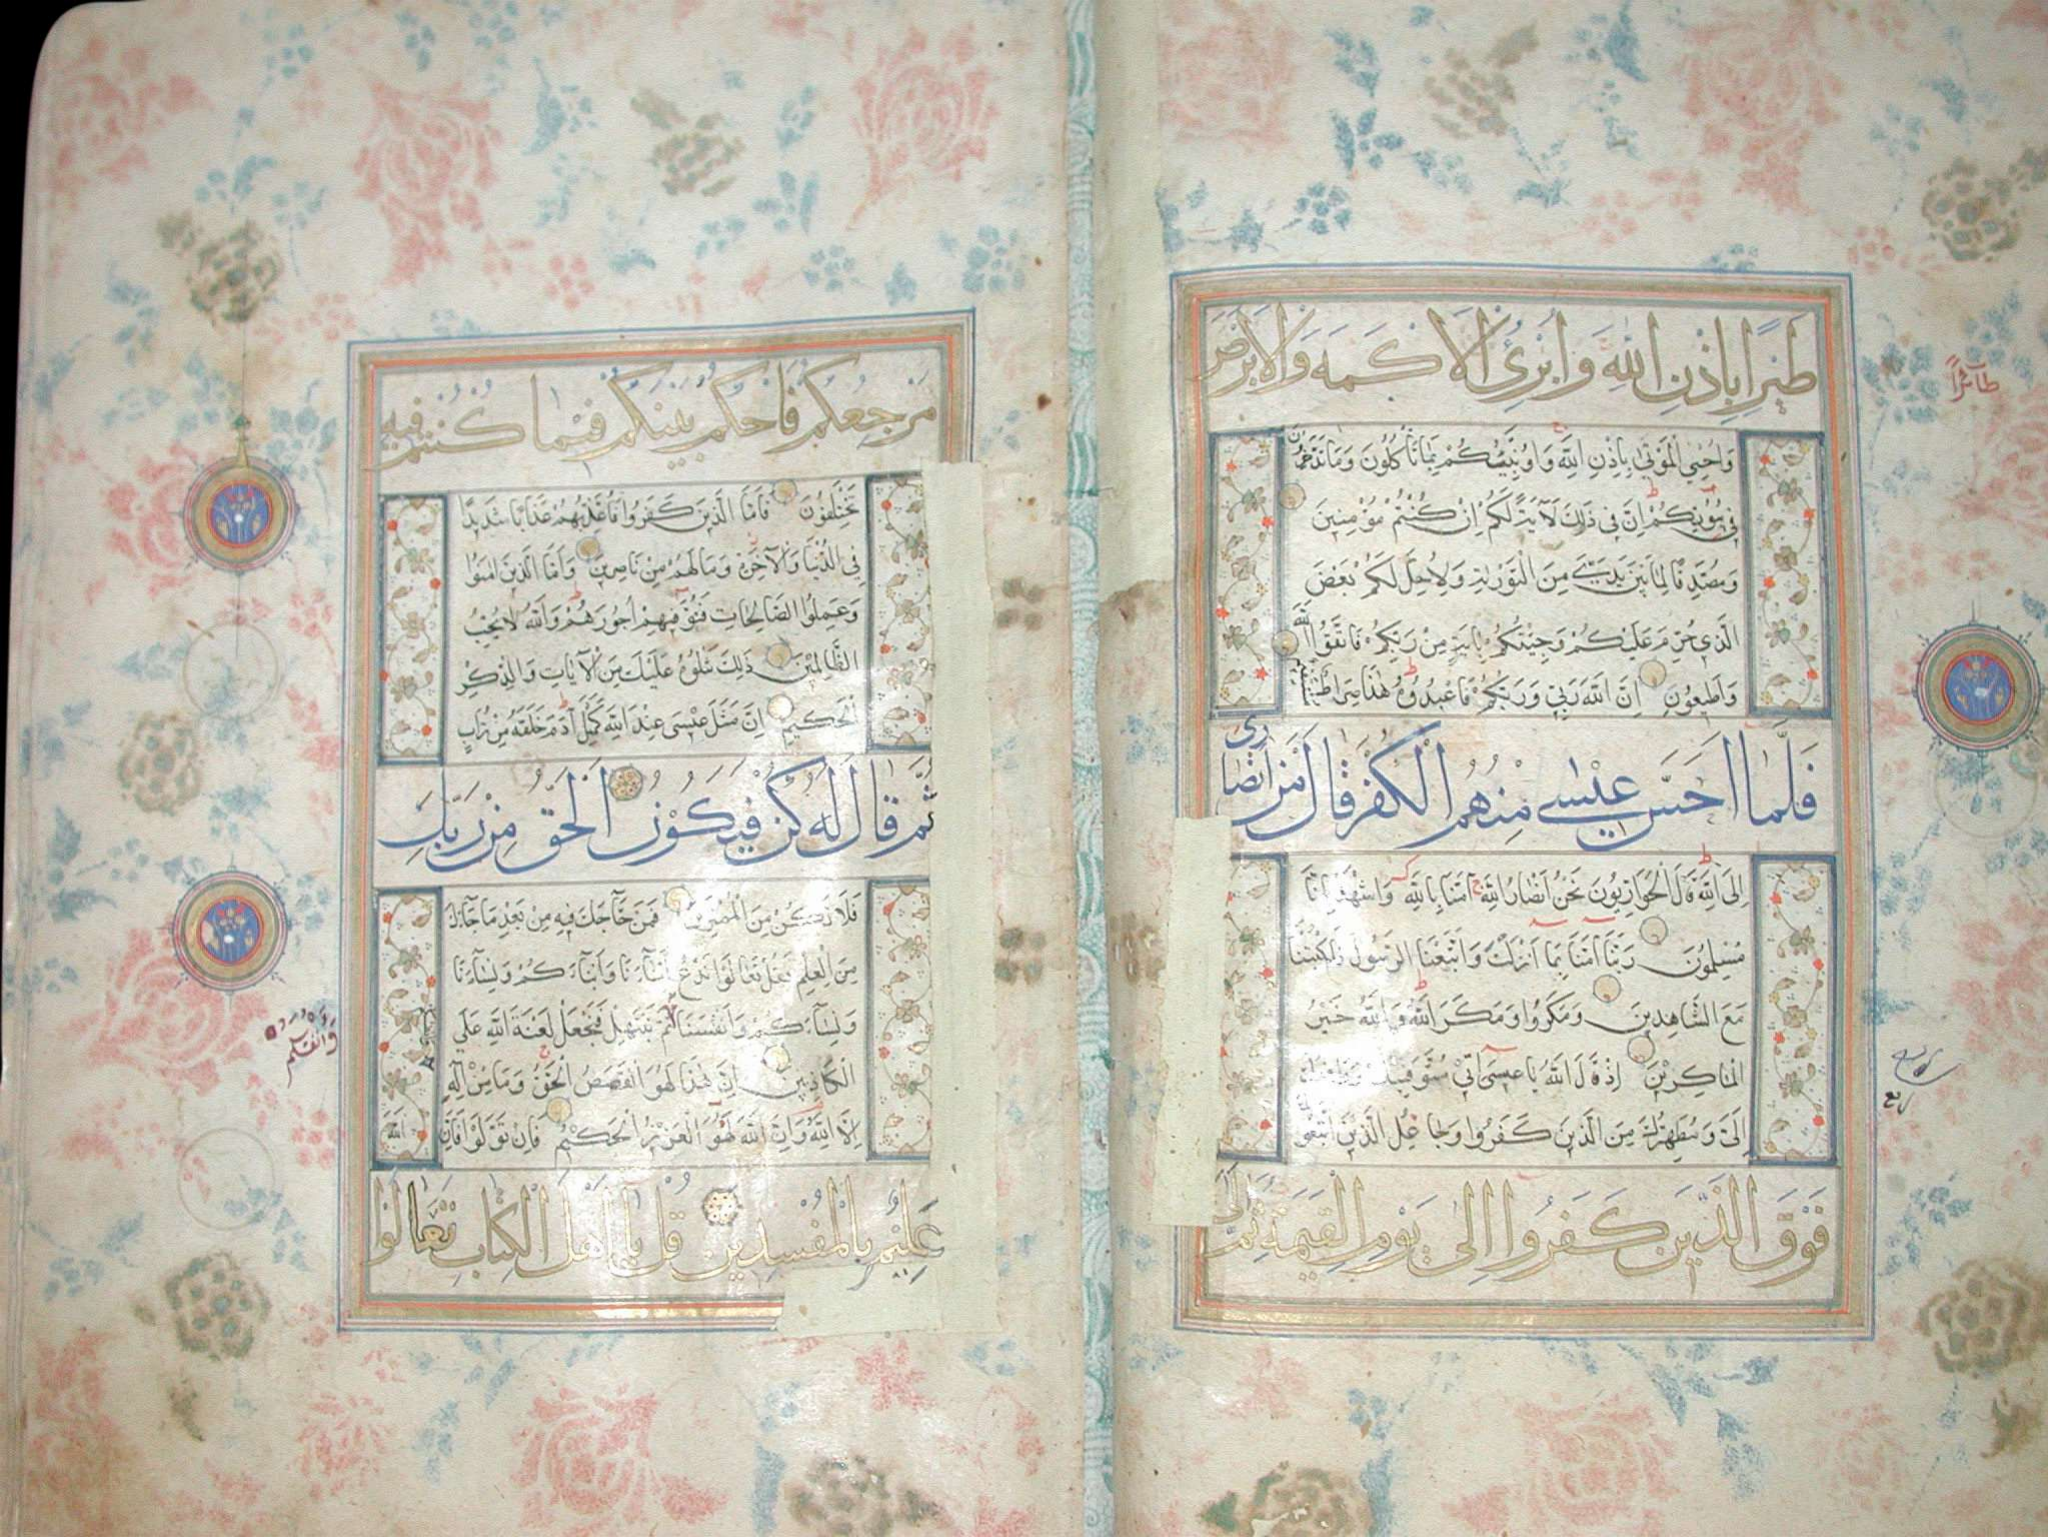 طَيْرًا بِإِذْنِ اللّٰهِ وَأُبْرِئُ الْأَكْمَهَ وَالْأَبْرَصَ
طآئراً
وَاُحْيِي الْمَوْتىٰ بِاِذْنِ اللّٰهِ وَاُنَبِّئُكُمْ بِمَا تَأْكُلُونَ وَمَا تَدَّخِرُونَ
فِي بُيُوتِكُمْ اِنَّ فِي ذٰلِكَ لَآيَةً لَكُمْ اِنْ كُنْتُمْ مُؤْمِنِينَ
وَمُصَدِّقًا لِمَا بَيْنَ يَدَيَّ مِنَ التَّوْرٰيةِ وَلِاُحِلَّ لَكُمْ بَعْضَ
الَّذِي حُرِّمَ عَلَيْكُمْ وَجِئْتُكُمْ بِاٰيَةٍ مِنْ رَبِّكُمْ فَاتَّقُوا اللّٰهَ
وَاَطِيعُونِ اِنَّ اللّٰهَ رَبِّي وَرَبُّكُمْ فَاعْبُدُوهُ هٰذَا صِرَاطٌ مُسْتَقِيمٌ
فَلَمَّا اَحَسَّ عِيسٰى مِنْهُمُ الْكُفْرَ قَالَ مَنْ اَنْصَارِي
اِلَى اللّٰهِ قَالَ الْحَوَارِيُّونَ نَحْنُ اَنْصَارُ اللّٰهِ اٰمَنَّا بِاللّٰهِ وَاشْهَدْ بِاَنَّا
مُسْلِمُونَ رَبَّنَا اٰمَنَّا بِمَا اَنْزَلْتَ وَاتَّبَعْنَا الرَّسُولَ فَاكْتُبْنَا
مَعَ الشَّاهِدِينَ وَمَكَرُوا وَمَكَرَ اللّٰهُ وَاللّٰهُ خَيْرُ
الْمَاكِرِينَ اِذْ قَالَ اللّٰهُ يَا عِيسٰى اِنِّي مُتَوَفِّيكَ وَرَافِعُكَ
اِلَيَّ وَمُطَهِّرُكَ مِنَ الَّذِينَ كَفَرُوا وَجَاعِلُ الَّذِينَ اتَّبَعُوكَ
ربع
فَوْقَ الَّذِينَ كَفَرُوا اِلىٰ يَوْمِ الْقِيٰمَةِ ثُمَّ اِلَيَّ
مَرْجِعُكُمْ فَاَحْكُمُ بَيْنَكُمْ فِيمَا كُنْتُمْ فِيهِ
تَخْتَلِفُونَ فَاَمَّا الَّذِينَ كَفَرُوا فَاُعَذِّبُهُمْ عَذَابًا شَدِيدًا
فِي الدُّنْيَا وَالْآخِرَةِ وَمَا لَهُمْ مِنْ نَاصِرِينَ وَاَمَّا الَّذِينَ اٰمَنُوا
وَعَمِلُوا الصَّالِحَاتِ فَنُوَفِّيهِمْ اُجُورَهُمْ وَاللّٰهُ لَا يُحِبُّ
الظَّالِمِينَ ذٰلِكَ نَتْلُوهُ عَلَيْكَ مِنَ الْآيَاتِ وَالذِّكْرِ
الْحَكِيمِ اِنَّ مَثَلَ عِيسٰى عِنْدَ اللّٰهِ كَمَثَلِ اٰدَمَ خَلَقَهُ مِنْ تُرَابٍ
ثُمَّ قَالَ لَهُ كُنْ فَيَكُونُ الْحَقُّ مِنْ رَبِّكَ
فَلَا تَكُنْ مِنَ الْمُمْتَرِينَ فَمَنْ حَآجَّكَ فِيهِ مِنْ بَعْدِ مَا جَآءَكَ
مِنَ الْعِلْمِ فَقُلْ تَعَالَوْا نَدْعُ اَبْنَآءَنَا وَاَبْنَآءَكُمْ وَنِسَآءَنَا
وَنِسَآءَكُمْ وَاَنْفُسَنَا ثُمَّ نَبْتَهِلْ فَنَجْعَلْ لَعْنَةَ اللّٰهِ عَلَى
وَاَنْفُسَكُمْ
الْكَاذِبِينَ اِنَّ هٰذَا لَهُوَ الْقَصَصُ الْحَقُّ وَمَا مِنْ اِلٰهٍ
اِلَّا اللّٰهُ وَاِنَّ اللّٰهَ لَهُوَ الْعَزِيزُ الْحَكِيمُ فَاِنْ تَوَلَّوْا فَاِنَّ اللّٰهَ
عَلِيمٌ بِالْمُفْسِدِينَ قُلْ يَا اَهْلَ الْكِتَابِ تَعَالَوْا